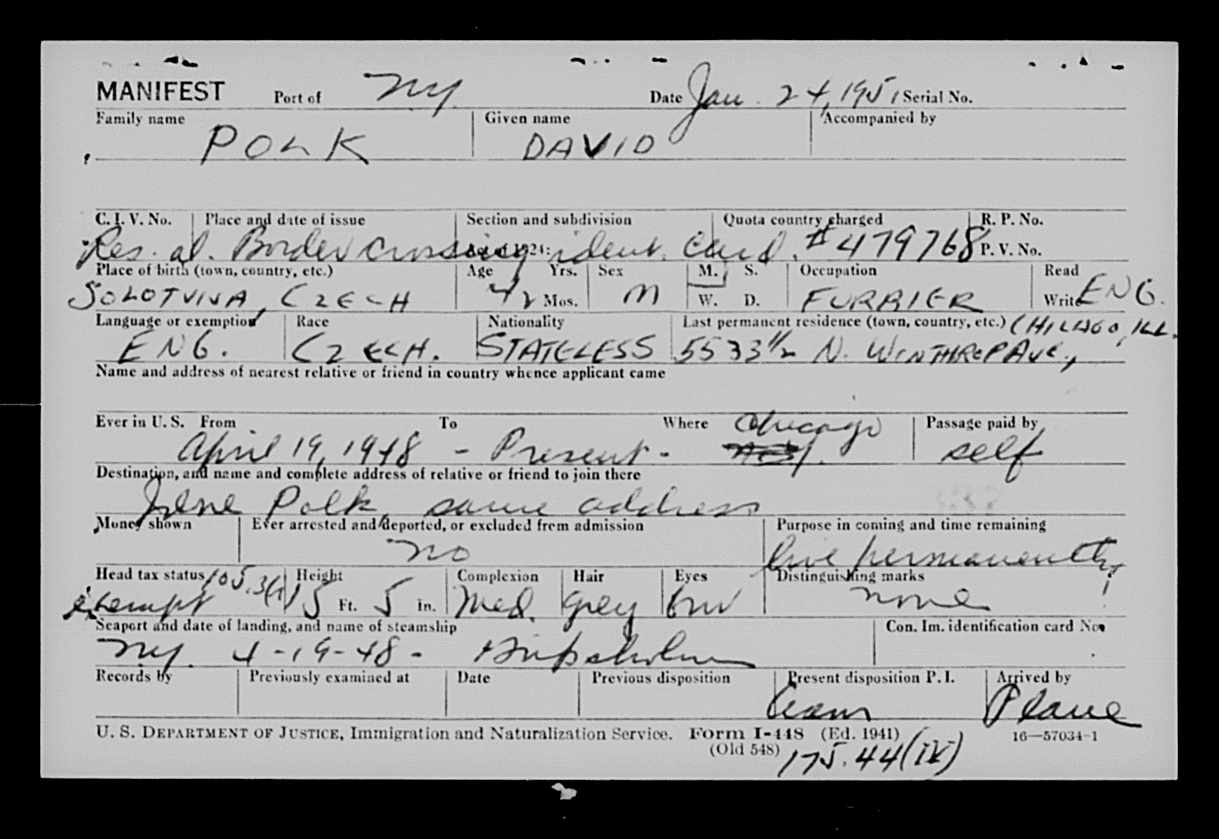 MANIFEST Port of NY. Date Jan. 24, 1951 Serial No.
Family name Given name Accompanied by
POLK DAVID
C. I. V. No. Place and date of issue Section and subdivision Quota country charged R. P. No.
Res. al. Border crossing ident. Card. #479768 P. V. No.
Place of birth (town, country, etc.) Age Yrs. Sex M. S. Occupation Read
SOLOTVINA, CZECH 42 Mos. M W. D. FURRIER Write ENG.
Language or exemption Race Nationality Last permanent residence (town, country, etc.) CHICAGO, ILL.
ENG. CZECH. STATELESS 5533½ N. WINTHROP AVE.,
Name and address of nearest relative or friend in country whence applicant came
Ever in U. S. From To Where Chicago Passage paid by
April 19, 1948 - Present - self
Destination, and name and complete address of relative or friend to join there
Irene Polk, same address
Money shown Ever arrested and deported, or excluded from admission Purpose in coming and time remaining
no live permanently
Head tax status 105.3(a) Height Complexion Hair Eyes Distinguishing marks
exempt 5 Ft. 5 In. Med. Grey brn none
Seaport and date of landing, and name of steamship Con. Im. identification card No.
NY. 4-19-48 - Gripsholm
Records by Previously examined at Date Previous disposition Present disposition P. I. Arrived by
Plane
U. S. DEPARTMENT OF JUSTICE, Immigration and Naturalization Service. Form I-448 (Ed. 1941) 16—57034-1
(Old 548) 175.44(IV)